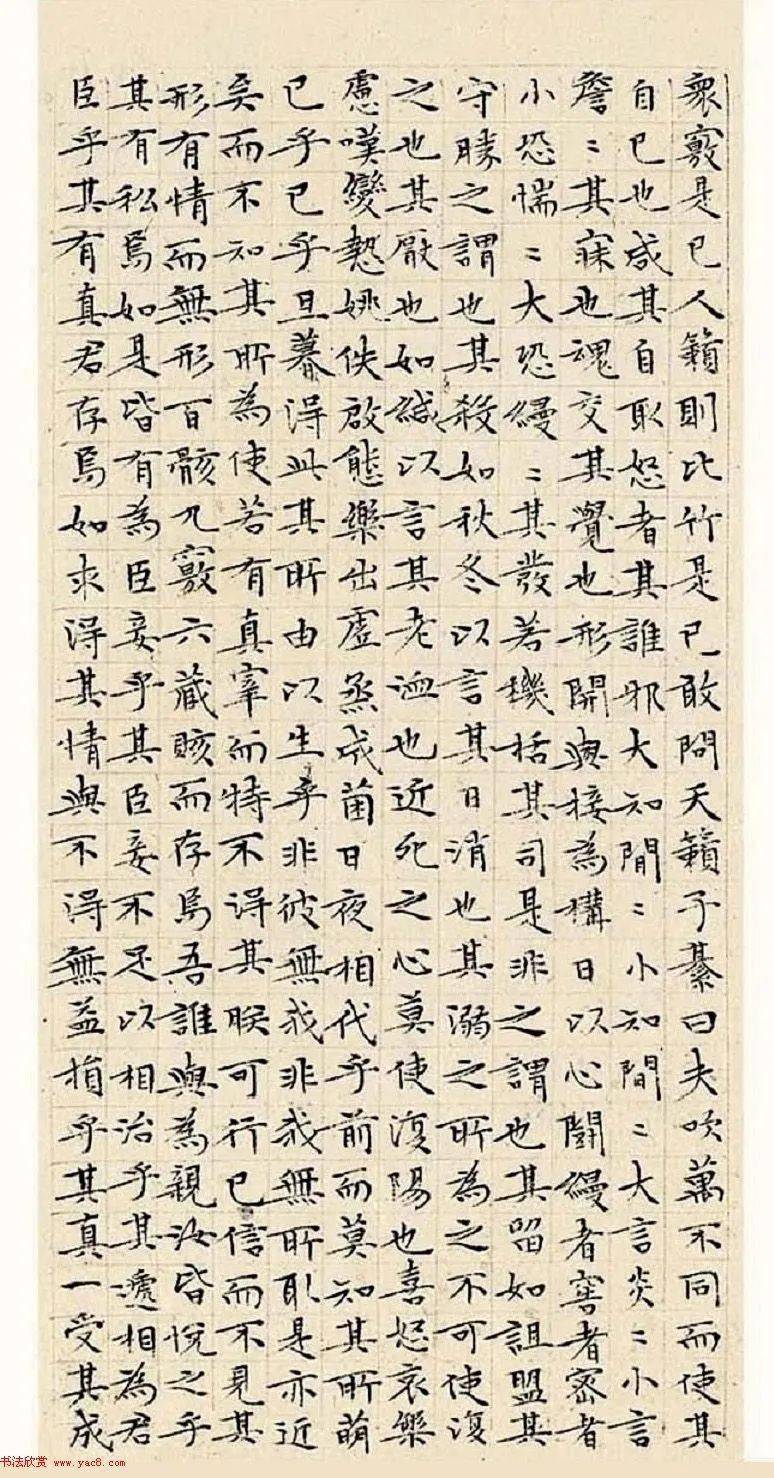 衆竅是已人籟則比竹是已敢問天籟子綦曰夫吹萬不同而使其
自已也咸其自取怒者其誰邪大知閒〻小知間〻大言炎〻小言
詹〻其寐也魂交其覺也形開與接為構日以心鬪縵者窖者密者
小恐惴〻大恐縵〻其發若機括其司是非之謂也其留如詛盟其
守勝之謂也其殺如秋冬以言其日消也其溺之所為之不可使復
之也其厭也如緘以言其老洫也近死之心莫使復陽也喜怒哀樂
慮嘆變慹姚佚啟態樂出虛蒸成菌日夜相代乎前而莫知其所萌
已乎已乎旦暮得此其所由以生乎非彼無我非我無所取是亦近
矣而不知其所為使若有真宰而特不得其眹可行已信而不見其
形有情而無形百骸九竅六藏賅而存焉吾誰與為親汝皆悅之乎
其有私焉如是皆有為臣妾乎其臣妾不足以相治乎其遞相為君
臣乎其有真君存焉如求得其情與不得無益損乎其真一受其成
书法欣赏 www.yac8.com